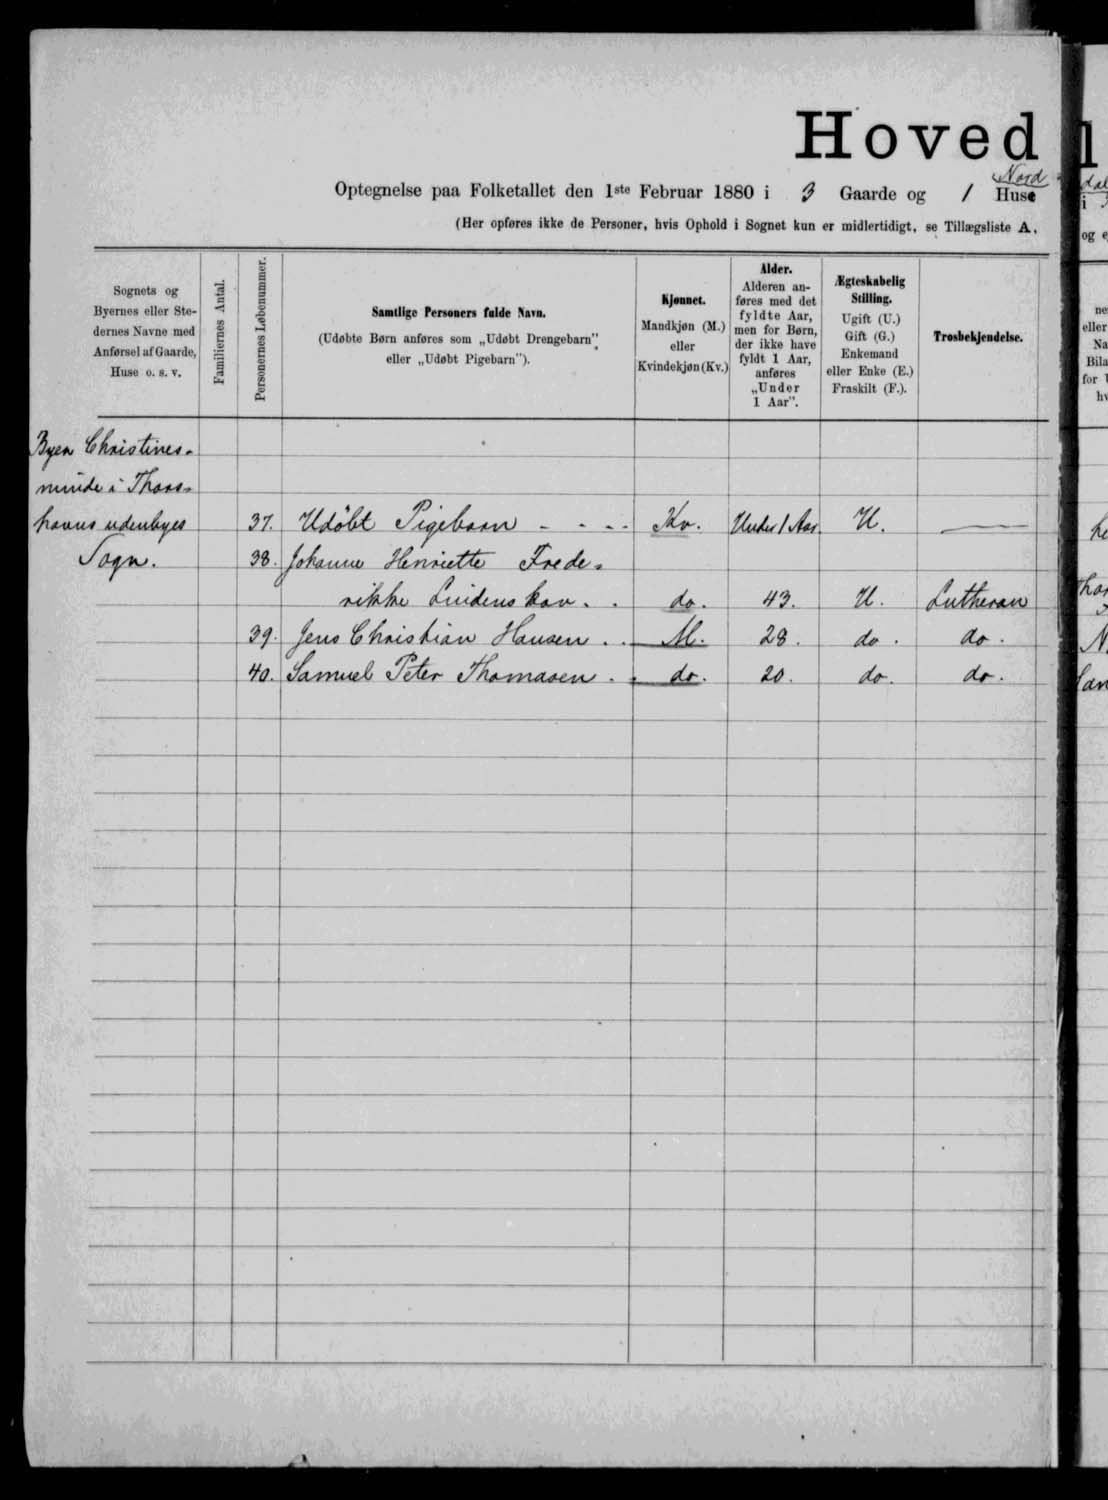 Hoved
Optegnelse paa Folketallet den 1ste Februar 1880 i 3 Gaarde og 1 Huse
Nord
(Her opføres ikke de Personer, hvis Ophold i Sognet kun er midlertidigt, se Tillægsliste A.
Sognets og
Byernes eller Ste-
dernes Navne med
Anførsel af Gaarde,
Huse o. s. v.
Familiernes Antal.
Personernes Løbenummer.
Samtlige Personers fulde Navn.
(Udøbte Børn anføres som „Udøbt Drengebarn”
eller „Udøbt Pigebarn”).
Kjønnet.
Mandkjøn (M.)
eller
Kvindekjøn (Kv.)
Alder.
Alderen an-
føres med det
fyldte Aar,
men for Børn,
der ikke have
fyldt 1 Aar,
anføres
„Under
1 Aar”.
Ægteskabelig
Stilling.
Ugift (U.)
Gift (G.)
Enkemand
eller Enke (E.)
Fraskilt (F.).
Trosbekjendelse.
Byen Christines-
minde i Thors-
havns udenbyes 37. Udøbt Pigebarn - - - - Kv. Under 1 Aar U. —
Sogn. 38. Johanne Henriette Frede-
rikke Lindenskov . . do. 43. U. Lutheran
39. Jens Christian Hansen . . M. 28. do. do.
40. Samuel Peter Thomasen . . do. 20. do. do.